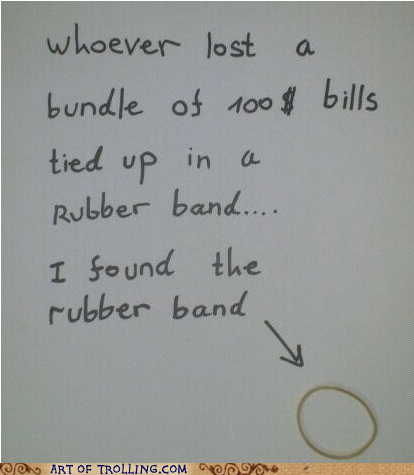 whoever lost a
bundle of 100$ bills
tied up in a
Rubber band....
I found the
rubber band
ART OF TROLLING.COM